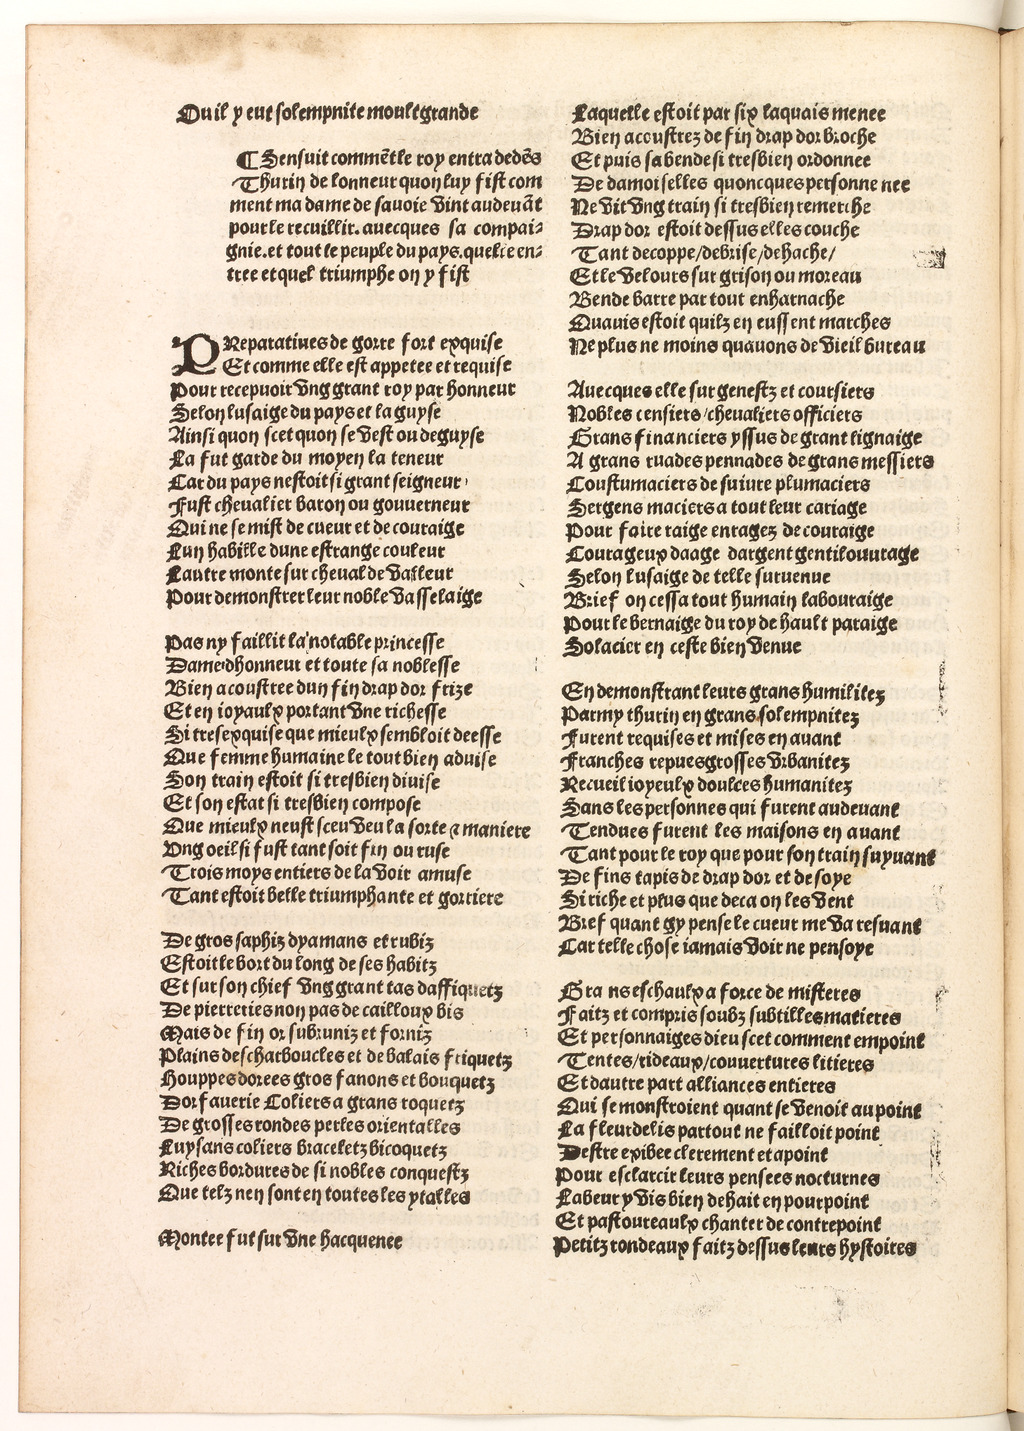 Ou il y eut solempnite moult grande
¶ Sensuit commẽt le roy entra dedẽs
Thurin de lonneur quon luy fist com
ment ma dame de savoie vint au devãt
pour le recuillir. avecques sa compai-
gnie. et tout le peuple du pays. quelle en-
tree et quel triumphe on y fist
PReparatives de gorre fort exquise
Et comme elle est appetee et requise
Pour recepvoir ung grant roy par honneur
Selon lusaige du pays et la guyse
Ainsi quon scet quon se vest ou deguyse
La fut garde du moyen la teneur
Car du pays nestoit si grant seigneur
Fust chevalier baron ou gouverneur
Qui ne se mist de cueur et de couraige
Lun habille dune estrange couleur
Lautre monte sur cheval de valleur
Pour demonstrer leur noble vasselaige
Pas ny faillit la notable princesse
Dame dhonneur et toute sa noblesse
Bien acoustree dun fin drap dor frize
Et en ioyaulx portant une richesse
Si tresexquise que mieulx sembloit deesse
Que femme humaine le tout bien advise
Son train estoit si tresbien divise
Et son estat si tresbien compose
Que mieulx neust sceu veu la sorte & maniere
Ung oeil si fust tant soit fin ou ruse
Trois moys entiers de la voir amuse
Tant estoit belle triumphante et gorriere
De gros saphiz dyamans et rubiz
Estoit le bort du long de ses habitz
Et sur son chief ung grant tas daffiquetz
De pierreries non pas de cailloux bis
Mais de fin or subruniz et forniz
Plains descharboucles et de balais friquetz
Houppes dorees gros fanons et bouquetz
Dorfaverie Coliers a grans roquetz
De grosses rondes perles orientalles
Luysans coliers braceletz bicoquetz
Riches bordures de si nobles conquestz
Que telz nen sont en toutes les ytalles
Montee fut sur une hacquenee
Laquelle estoit par six laquais menee
Bien accustrez de fin drap dor broche
Et puis sa bende si tresbien ordonnee
De damoiselles quoncques personne nee
Ne vit ung train si tresbien remerche
Drap dor estoit dessus elles couche
Tant decoppe/debrise/dehache/
Et le velours sur grison ou moreau
Bende barre par tout enharnache
Quavis estoit quilz en eussent marches
Ne plus ne moins quavons de vieil bureau
Avecques elle sur genestz et coursiers
Nobles censiers/chevaliers officiers
Grans financiers yssus de grant lignaige
A grans ruades pennades de grans messiers
Coustumaciers de suivre plumaciers
Sergens maciers a tout leur cariage
Pour faire raige enragez de couraige
Courageux daage dargent gentil ouvrage
Selon lusaige de telle survenue
Brief on cessa tout humain labouraige
Pour le bernaige du roy de hault paraige
Solacier en ceste bien venue
En demonstrant leurs grans humilitez
Parmy thurin en grans solempnitez
Furent requises et mises en avant
Franches repues grosses urbanitez
Recueil ioyeulx doulces humanitez
Sans les personnes qui furent au devant
Tendues furent les maisons en avant
Tant pour le roy que pour son train suyvant
De fins tapis de drap dor et de soye
Si riche et plus que deca on les vent
Bref quant gy pense le cueur me va resvant
Car telle chose iamais voir ne pensoye
Grans eschaulx a force de misteres
Faitz et compris soubz subtilles matieres
Et personnaiges dieu scet comment empoint
Tentes/rideaux/couvertures litieres
Et dautre part alliances entieres
Qui se monstroient quant se venoit au point
La fleur de lis par tout ne failloit point
Destre exibee clerement et a point
Pour esclarcir leurs pensees nocturnes
Labeur y vis bien dehait en pourpoint
Et pastoureaulx chanter de contrepoint
Petitz rondeaux faitz dessus leurs hystoires